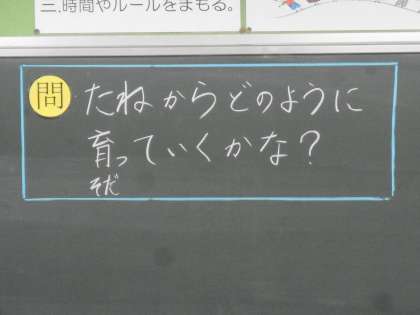 三.時間やルールをまもる。
問 たねからどのように
育っていくかな？
そだ